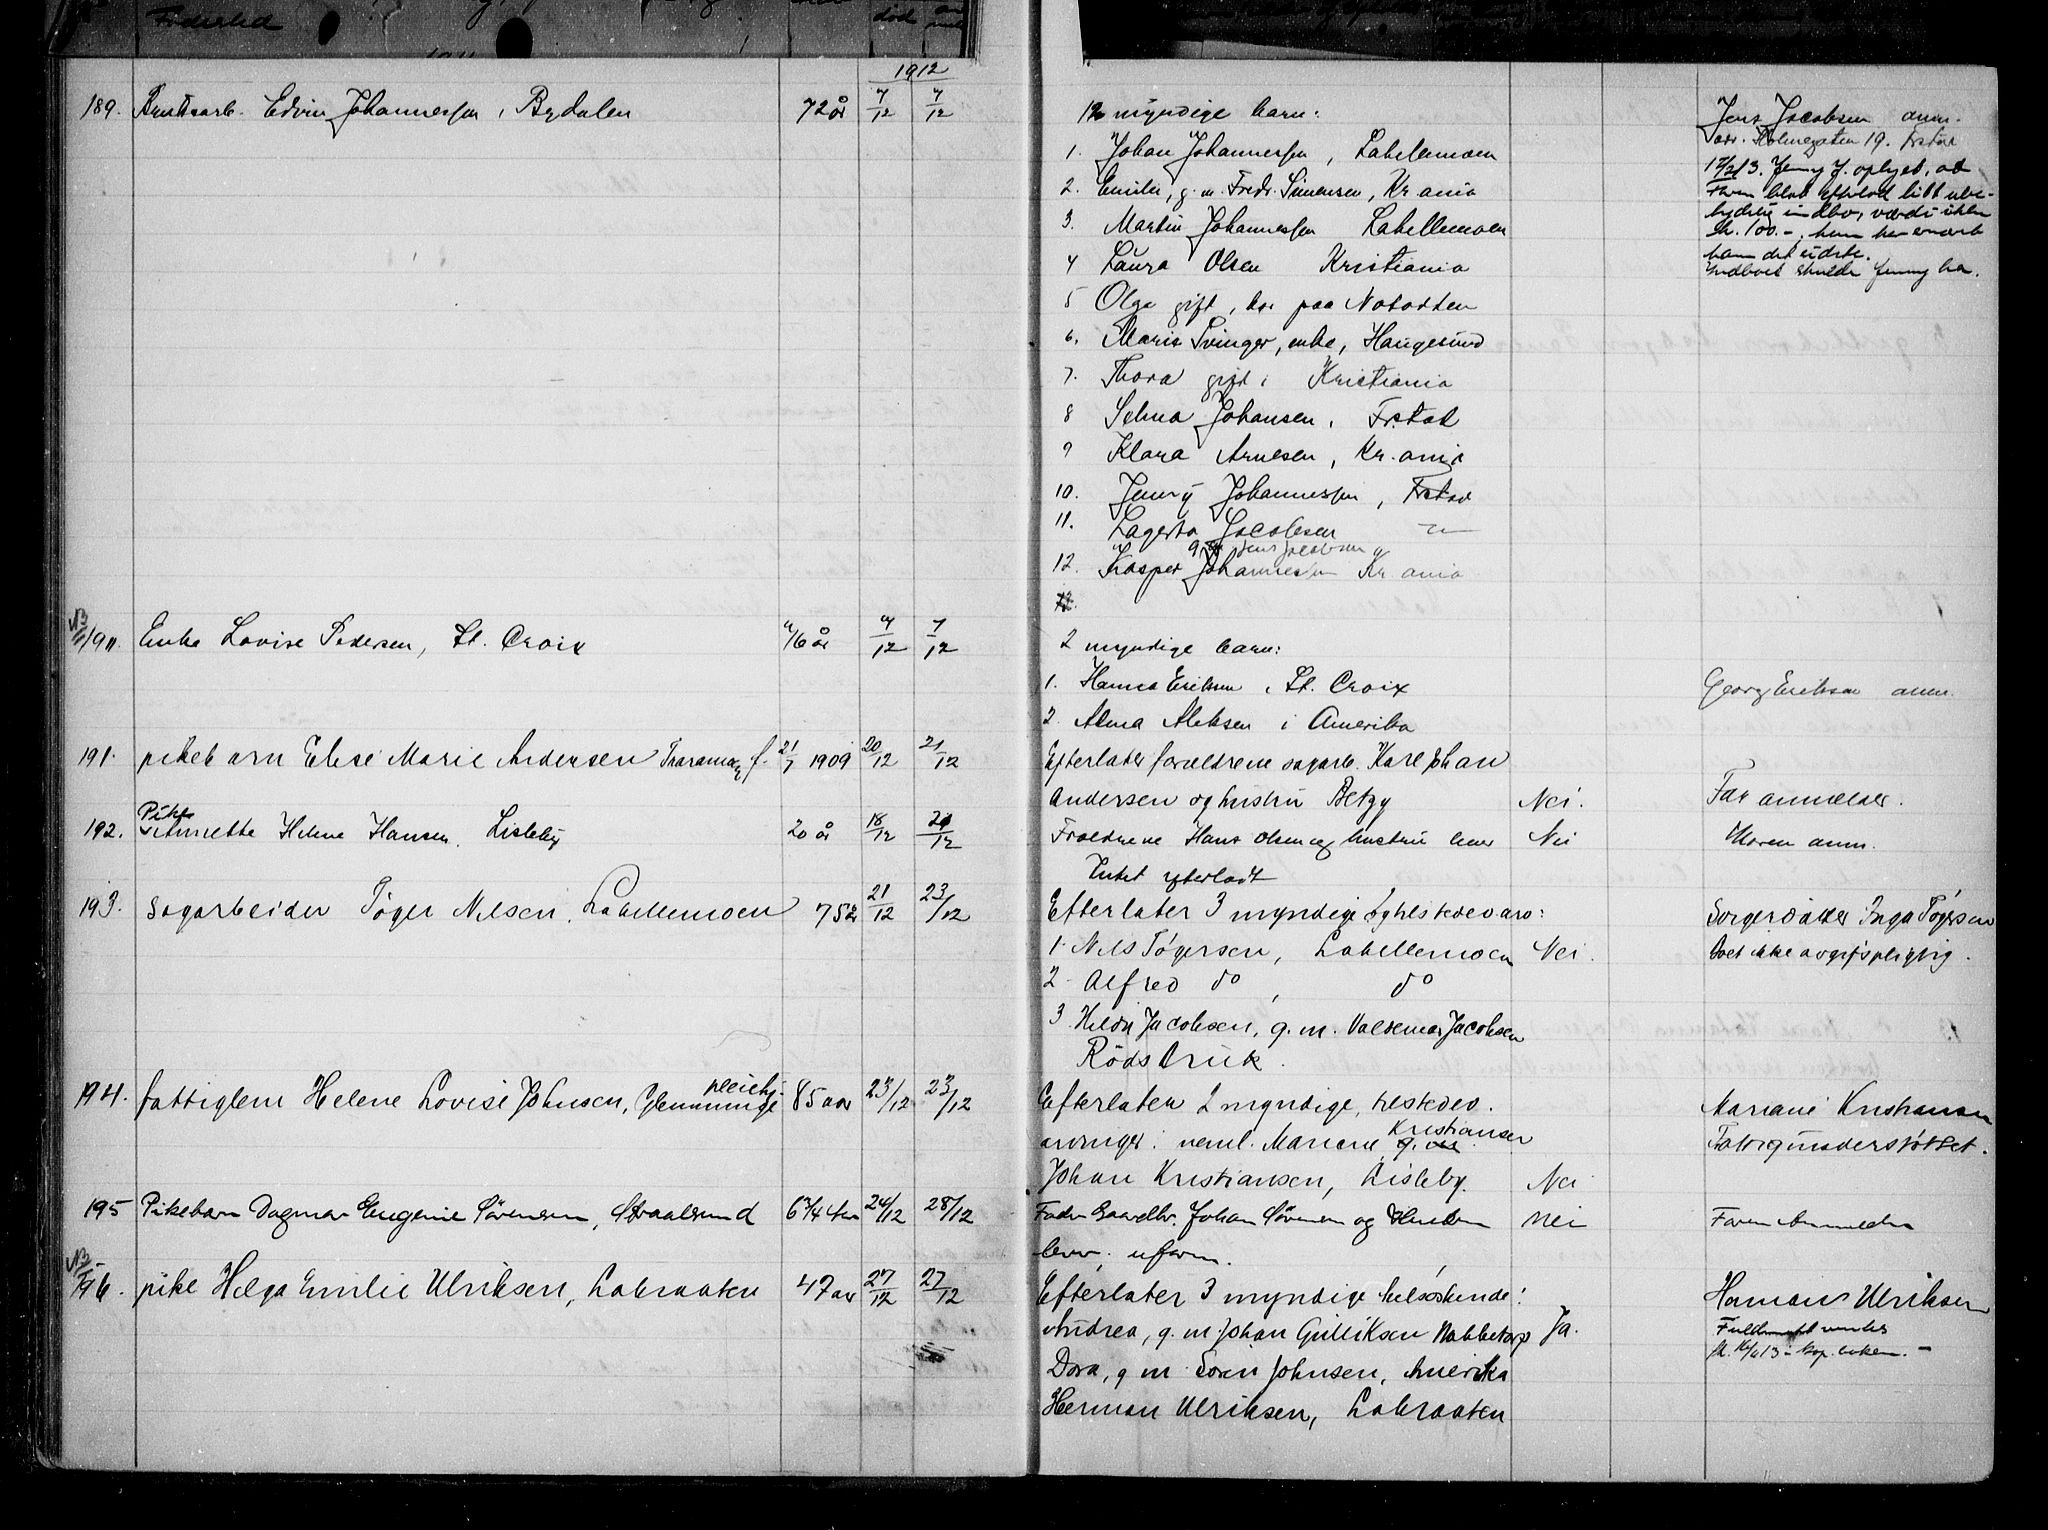 Fødested
død
1912
189. Bruksarb. Edvin Johannessen, Bydalen 72 år 7/12 7/12
12 myndige barn:
1. Johan Johannessen, Labellemoen
2. Emilie, g. m. Fredr. Simensen, Kr.ania
3. Martin Johannessen Labellemoen
4 Laura Olsen Kristiania
5 Olga gift, bor paa Notodden
6. Marie Svinger, enke, Haugesund
7. Thora gift i Kristiania
8 Selma Johansen, Fr.stad
9 Klara Arnesen, Kr.ania
10. Jenny Johannessen, Frstad
11. Lagerta Jacobsen
g. m. Jens Jacobsen
12. Kasper Johannessen Kr.ania
Jens Jacobsen anm.
adr. Holmegaten 19. Frstad
Jenny J. oplyst, at
Faren blot efterlod litt ube-
tydelig indbo, værdi ikke
kr. 100.-, hun har
ham det sidste.
Indboet skulde Jenny ha.
190. Enke Lovise Pedersen, St. Croix 76 år 7/12 7/12
2 myndige barn:
1. Hanna Eriksen, St. Croix
2. Alma Aleksen i Amerika
Georg Eriksen anm.
191. pikebarn Elise Marie Andersen f. 21/7 1909 20/12 21/12
Efterlater forældrene sagarb. Karl Johan
Andersen og hustru Betzy Nei. Far anmelder.
192. Pike Annette Helene Hansen. Lisleby 20 år 18/12 21/12
Forældrene Hans Olsen og hustru lever Nei Moren anm.
Intet efterladt
193. Sagarbeider Tøger Nilsen, Labellemoen 75 år 21/12 23/12
Efterlater 3 myndige og tilstedev. arv:
1. Nils Tøgersen, Labellemoen Nei.
2. Alfred do, do
3. Hilda Jacobsen, g. m. Valdemar Jacobsen
Rødsbruk.
Svigerdatter Inga Tøgersen
Boet ikke avgiftspligtig.
194. fattiglem Helene Lovise Johnsen, Glemminge pleiehj. 85 aar 23/12 23/12
Efterlater 2 myndige, tilstedev.
arvinger: neml. Mariane Kristiansen
Johan Kristiansen, Lisleby. Nei
Mariane Kristiansen
Fattigunderstøttet.
195 Pikebarn Dagmar Eugenie Sørensen, Straalsund 6 3/4 Aar 24/12 28/12
Fader Gaardbr. Johan Sørensen og Hustru Nei Faren Anmelder
lever.
196. pike Helga Emilie Ulriksen, Labraaten 47 aar 27/12 27/12
Efterlater 3 myndige helsøskende:
Andrea, g. m. Johan Gulliksen Nabbetorp Ja.
Dora, g m Soren Johnsen, Amerika
Herman Ulriksen, Labraaten
Herman Ulriksen